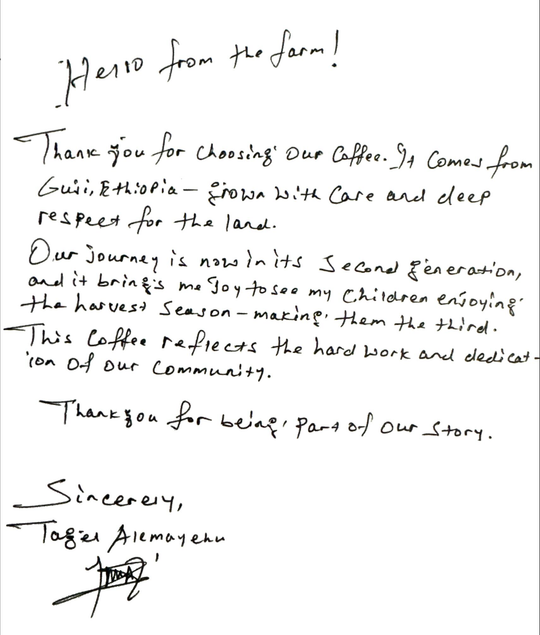 Hello from the farm!
Thank you for choosing our coffee. It comes from
Guji, Ethiopia – grown with care and deep
respect for the land.
Our journey is now in its second generation,
and it brings me joy to see my children enjoying
the harvest season – making them the third.
This coffee reflects the hard work and dedicat-
ion of our community.
Thank you for being part of our story.
Sincerely,
Alemayehu